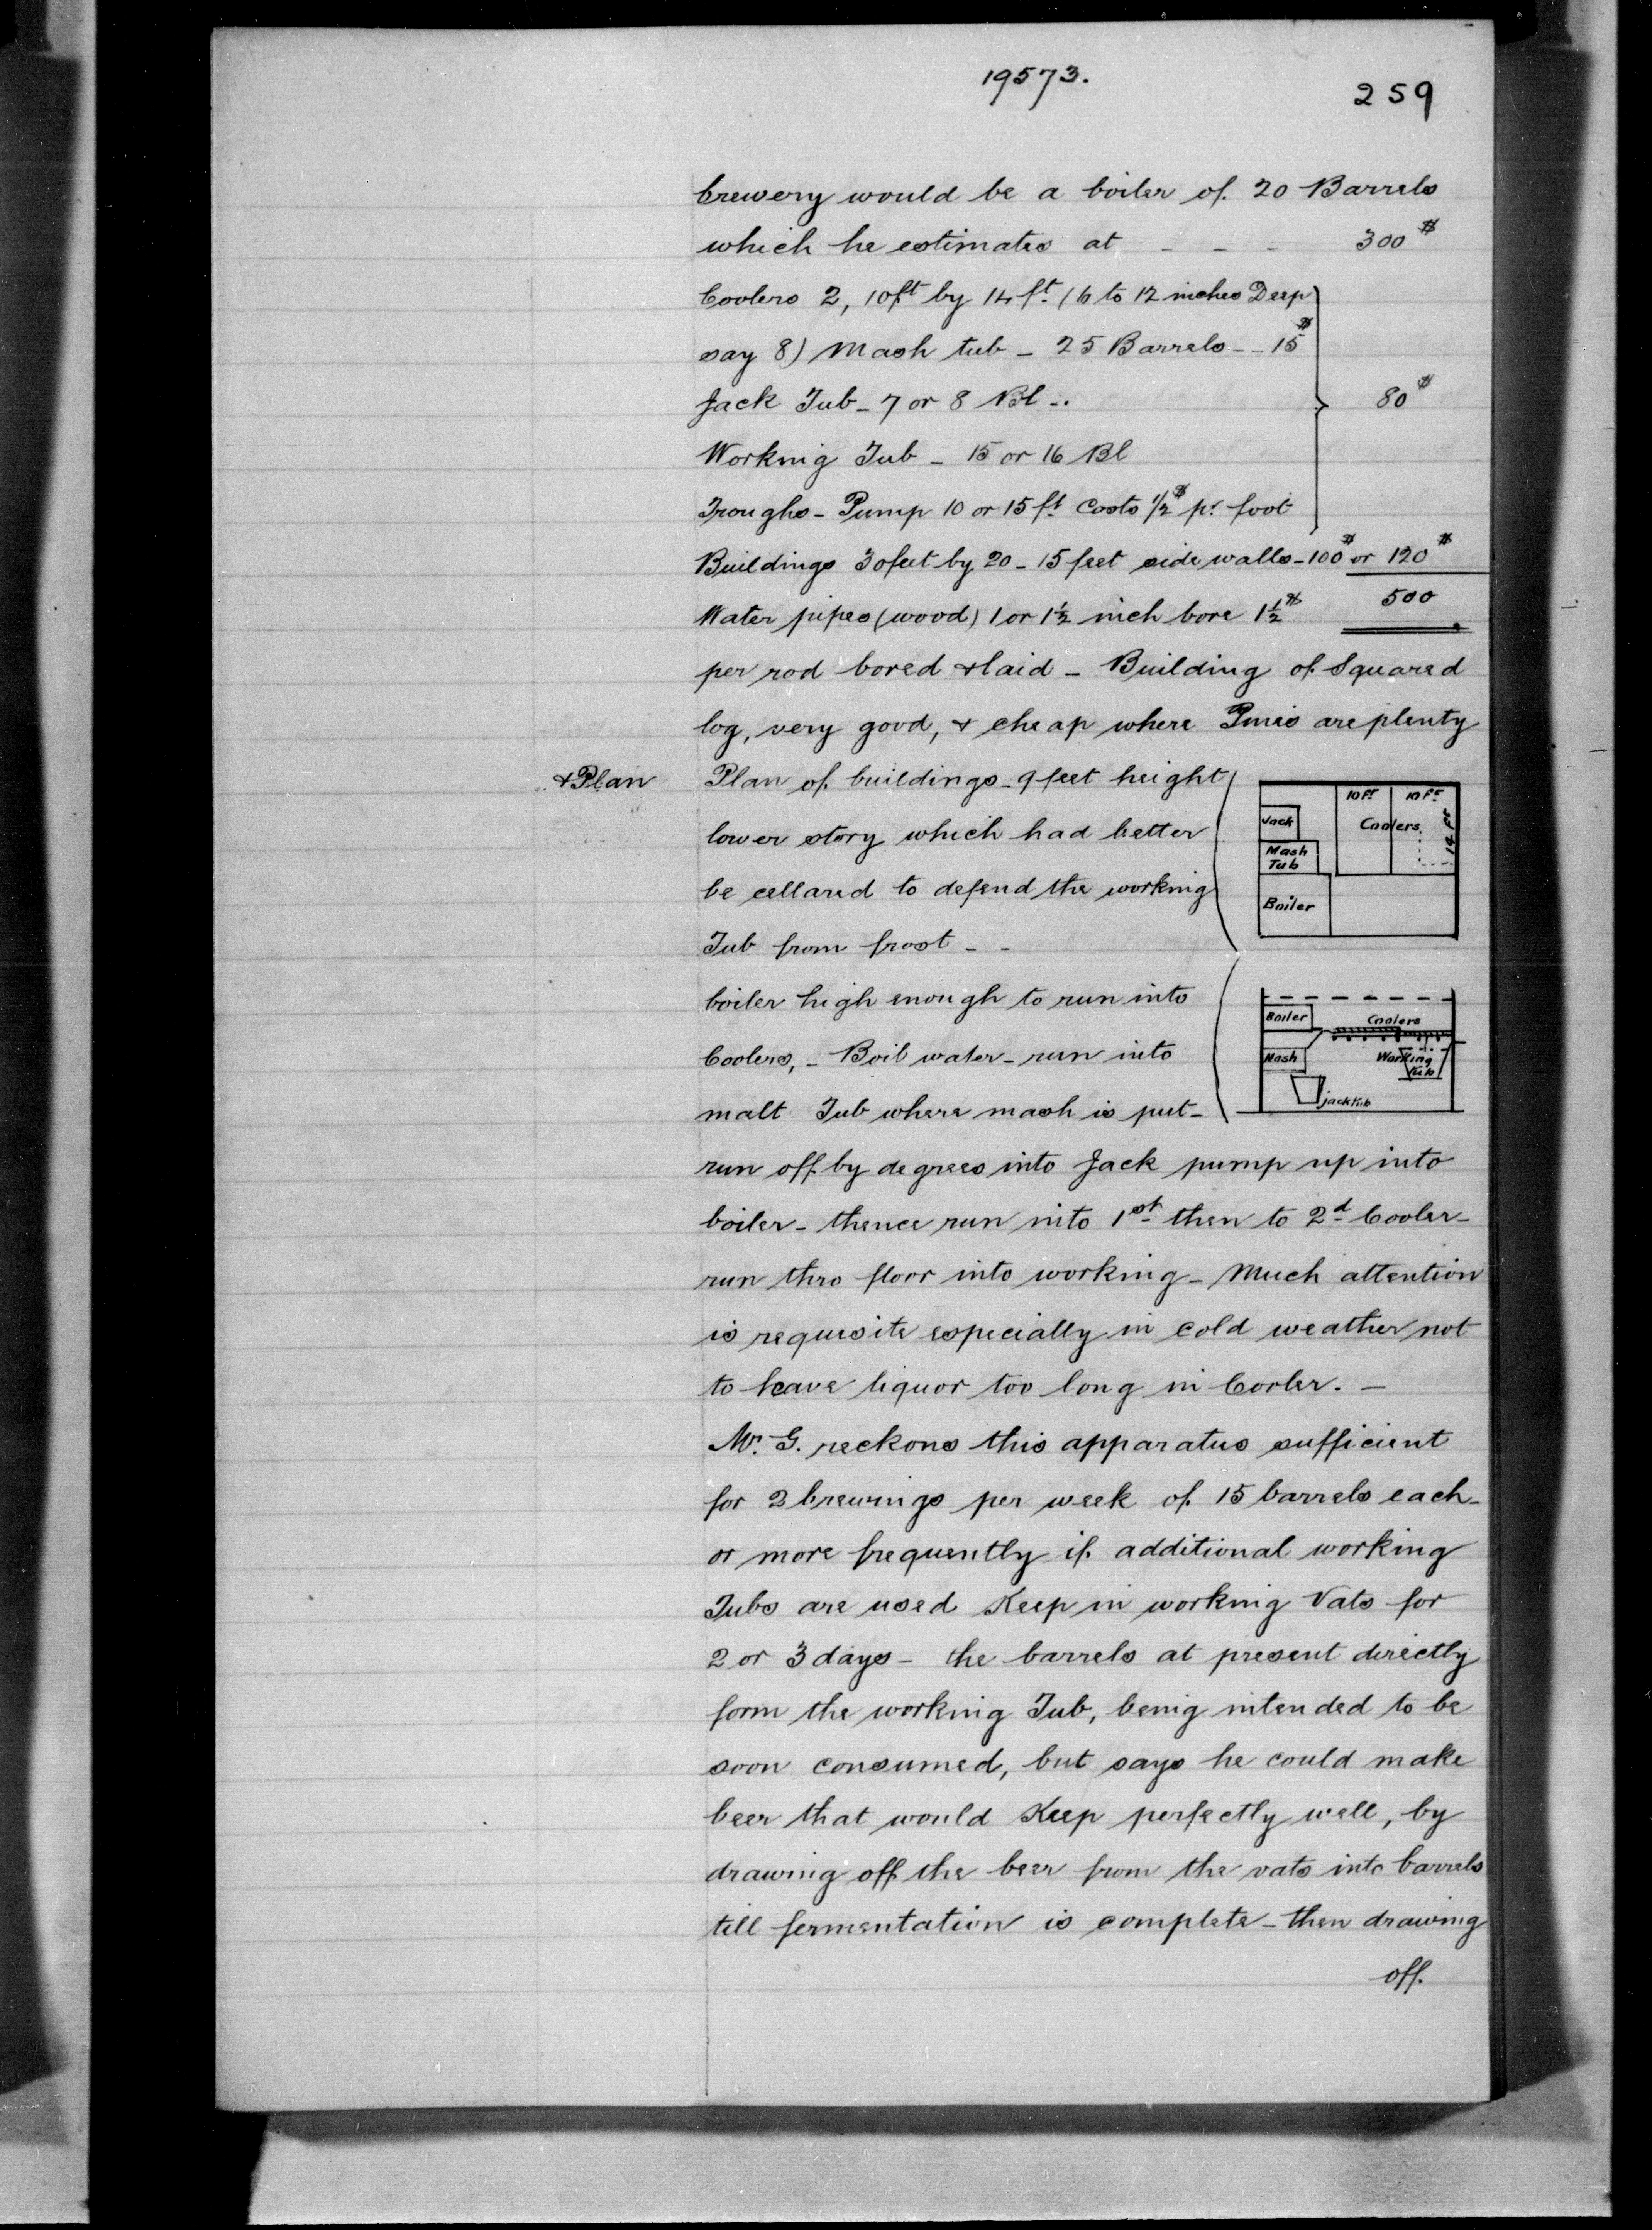 19573.
259
brewery would be a boiler of 20 Barrels
which he estimates at - - - 300 $
Coolers 2, 10 ft by 14 ft. (6 to 12 inches Deep
say 8) Mash tub - 25 Barrels - - 15 $
Jack Tub - 7 or 8 Bl - . 80 $
Working Tub - 15 or 16 Bl
Troughs - Pump 10 or 15 ft Costs 1/2 $ pr foot
Buildings 30 feet by 20 - 15 feet side walls - 100 $ or 120 $
500
Water pipes (wood) 1 or 1½ inch bore 1½ $
per rod bored & laid - Building of Squared
log, very good, & cheap where Pines are plenty
& Plan
Plan of buildings - 9 feet height
lower story which had better
be cellared to defend the working
Tub from frost - -
10 Ft 10 Ft
Jack
Coolers
14 Ft
Mash
Tub
Boiler
boiler high enough to run into
Coolers, - Boil water - run into
malt Tub where mash is put -
Boiler
Coolers
Mash
Working
Tub
jack tub
run off by degrees into Jack pump up into
boiler - thence run into 1st then to 2d Cooler -
run thro floor into working - Much attention
is requisite especially in cold weather not
to leave liquor too long in Cooler. -
Mr. G. reckons this apparatus sufficient
for 2 brewings per week of 15 barrels each -
or more frequently if additional working
Tubs are used Keep in working Vats for
2 or 3 days - the barrels at present directly
form the working Tub, being intended to be
soon consumed, but says he could make
beer that would Keep perfectly well, by
drawing off the beer from the vats into barrels
till fermentation is complete - then drawing
off.